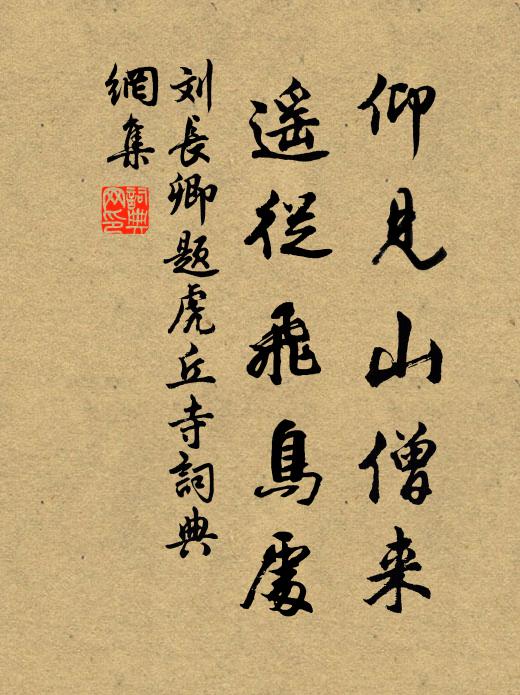 仰見山僧来
遥従飛鳥處
刘長卿題虎丘寺詞典
網集
詞典
网印